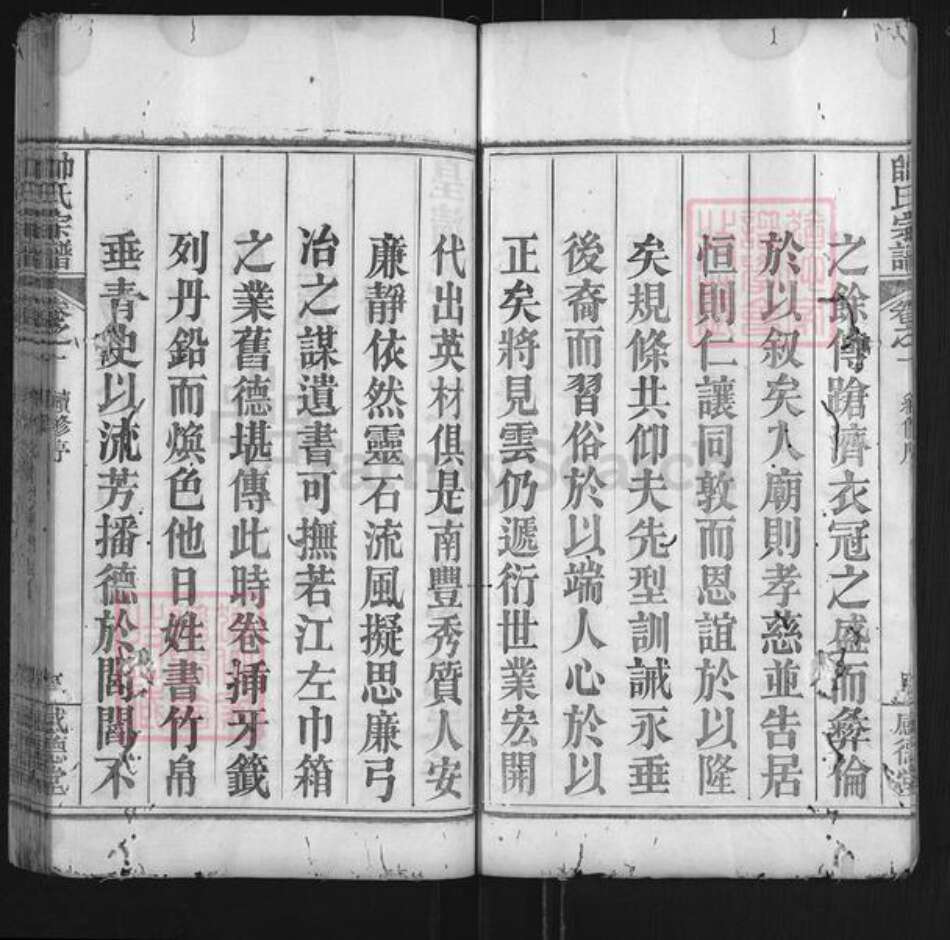 之餘傳蹌濟衣冠之盛而彝倫
於以叙矣入廟則孝慈並告居
恒則仁讓同敦而恩誼於以隆
矣規條共仰夫先型訓誡永垂
後裔而習俗於以端人心於以
正矣將見雲仍遞衍世業宏開
代出英材俱是南豐秀質人安
廉靜依然靈石流風擬思廉弓
冶之謀遺書可撫若江左巾箱
之業舊德堪傳此時卷挿牙籤
列丹鉛而煥色他日姓書竹帛
垂青史以流芳播德於閭閻不
帥氏宗譜
卷之一
續修序
咸德堂
FamilySearch